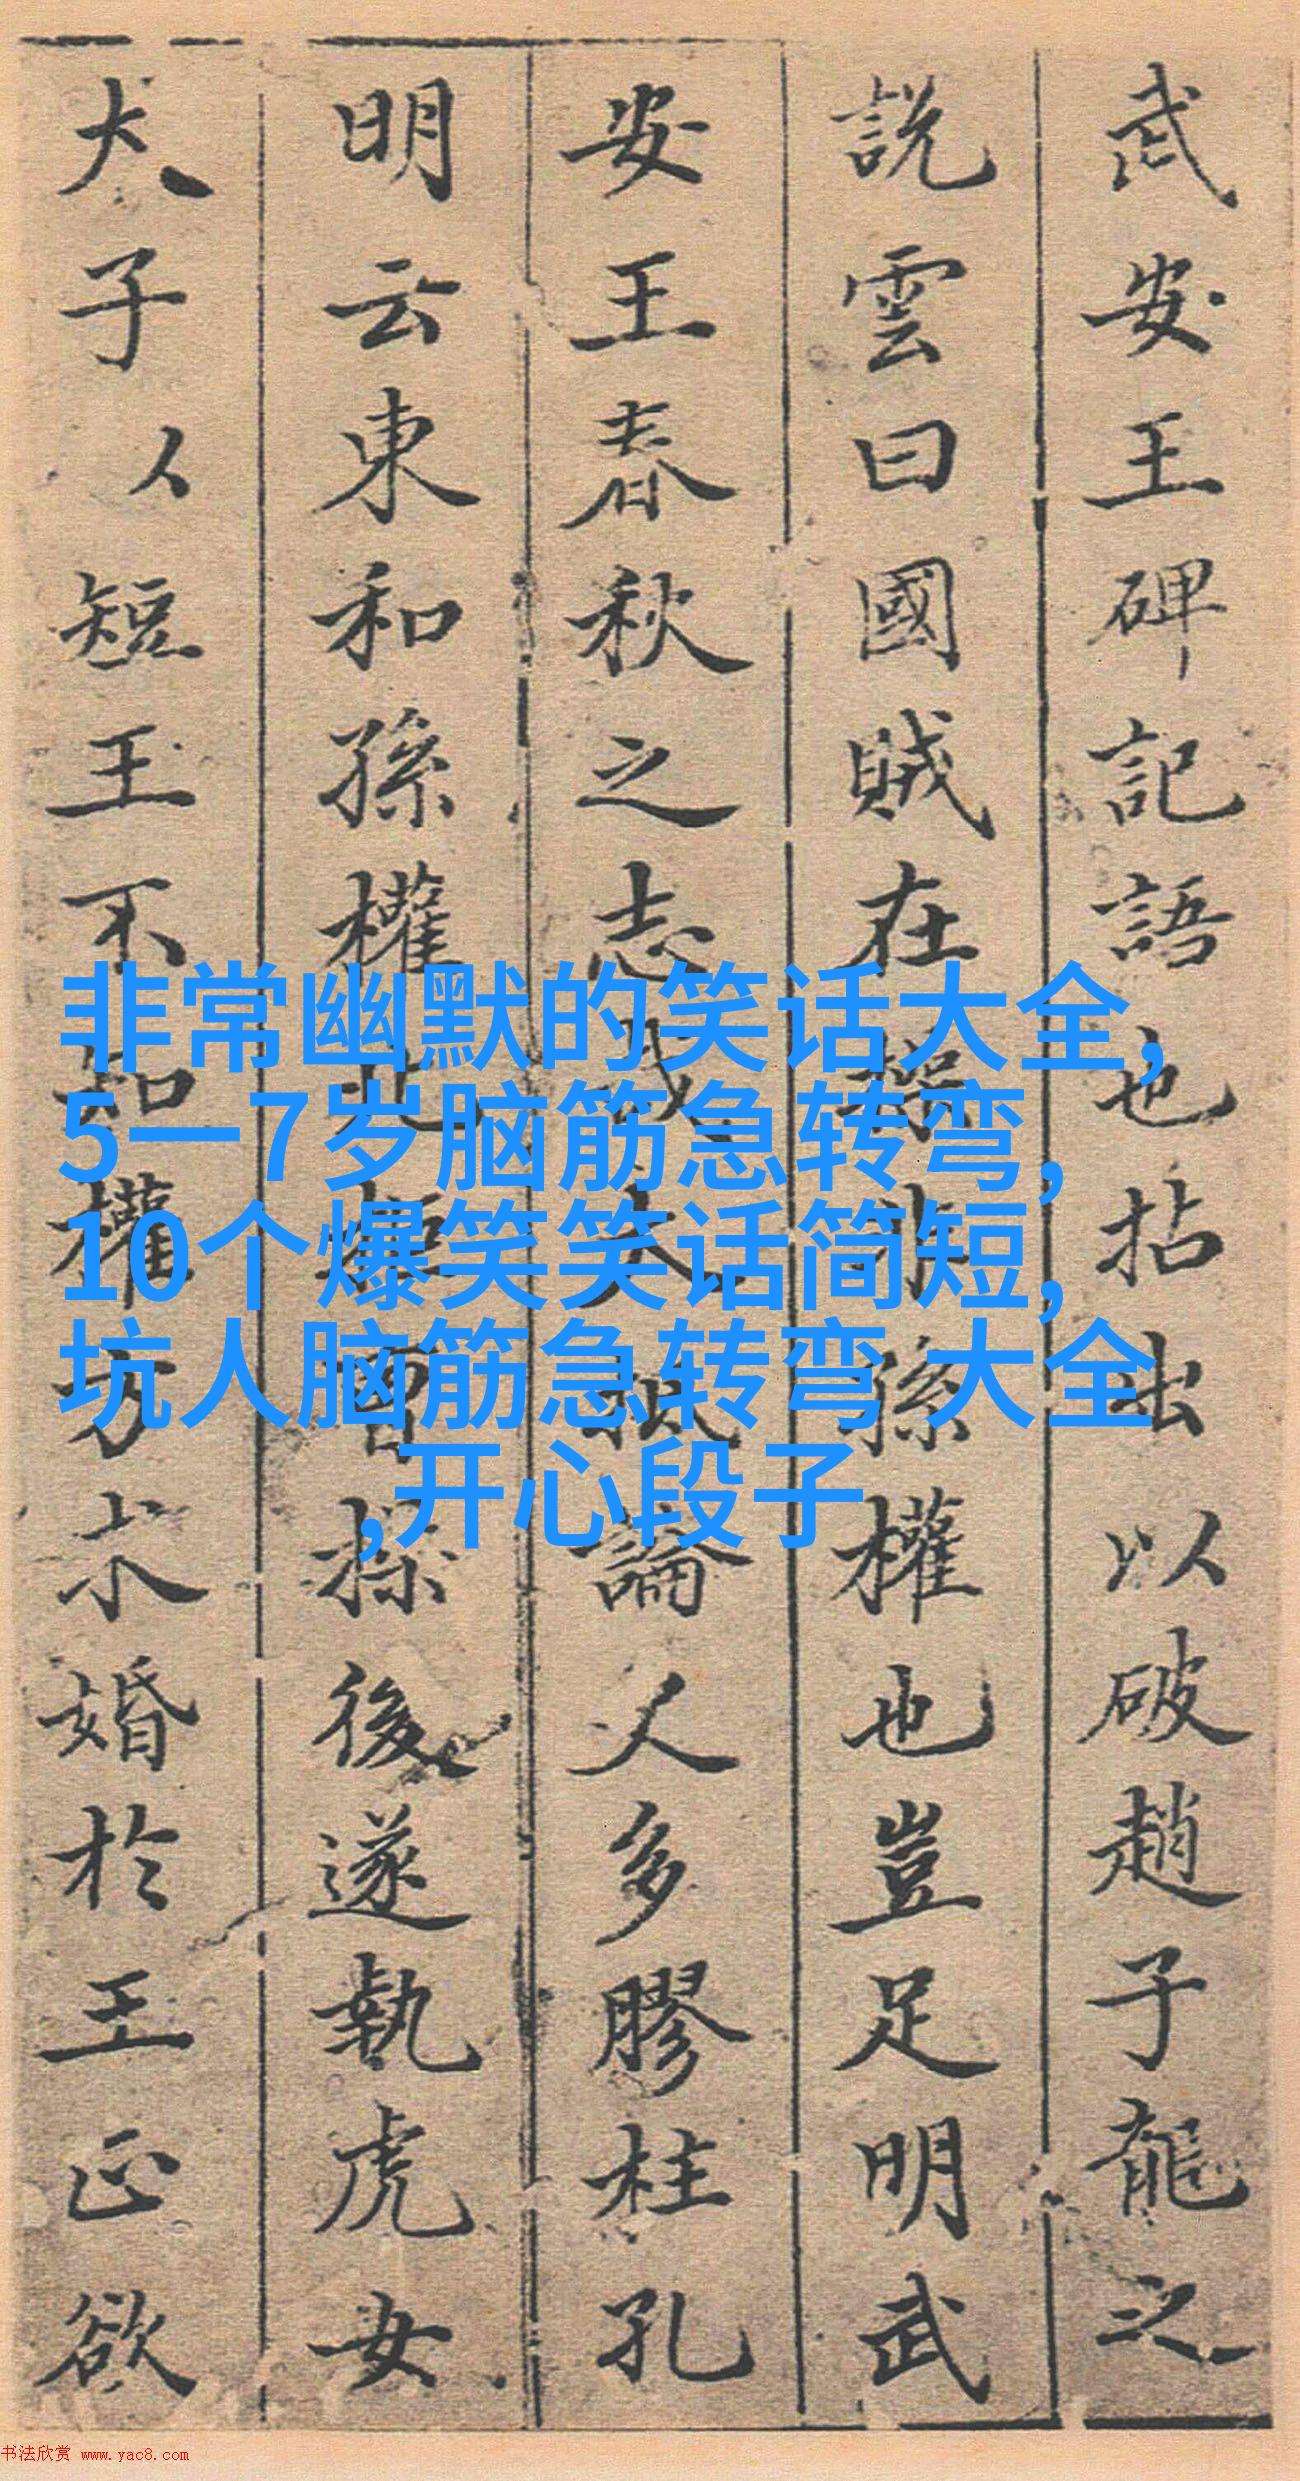 武安王碑記語也拈出以破趙子龍之
說雲曰國賊在操非孫權也豈足明武
安王春秋之志哉大抵論人多膠柱孔
明云東和孫權北拒曹操後遂執虎女
犬子以短王不知權方求婚於王正欲
非常幽默的笑话大全,
5一7岁脑筋急转弯,
10个爆笑笑话简短,
坑人脑筋急转弯 大全
,开心段子
书法欣赏 www.yac8.com